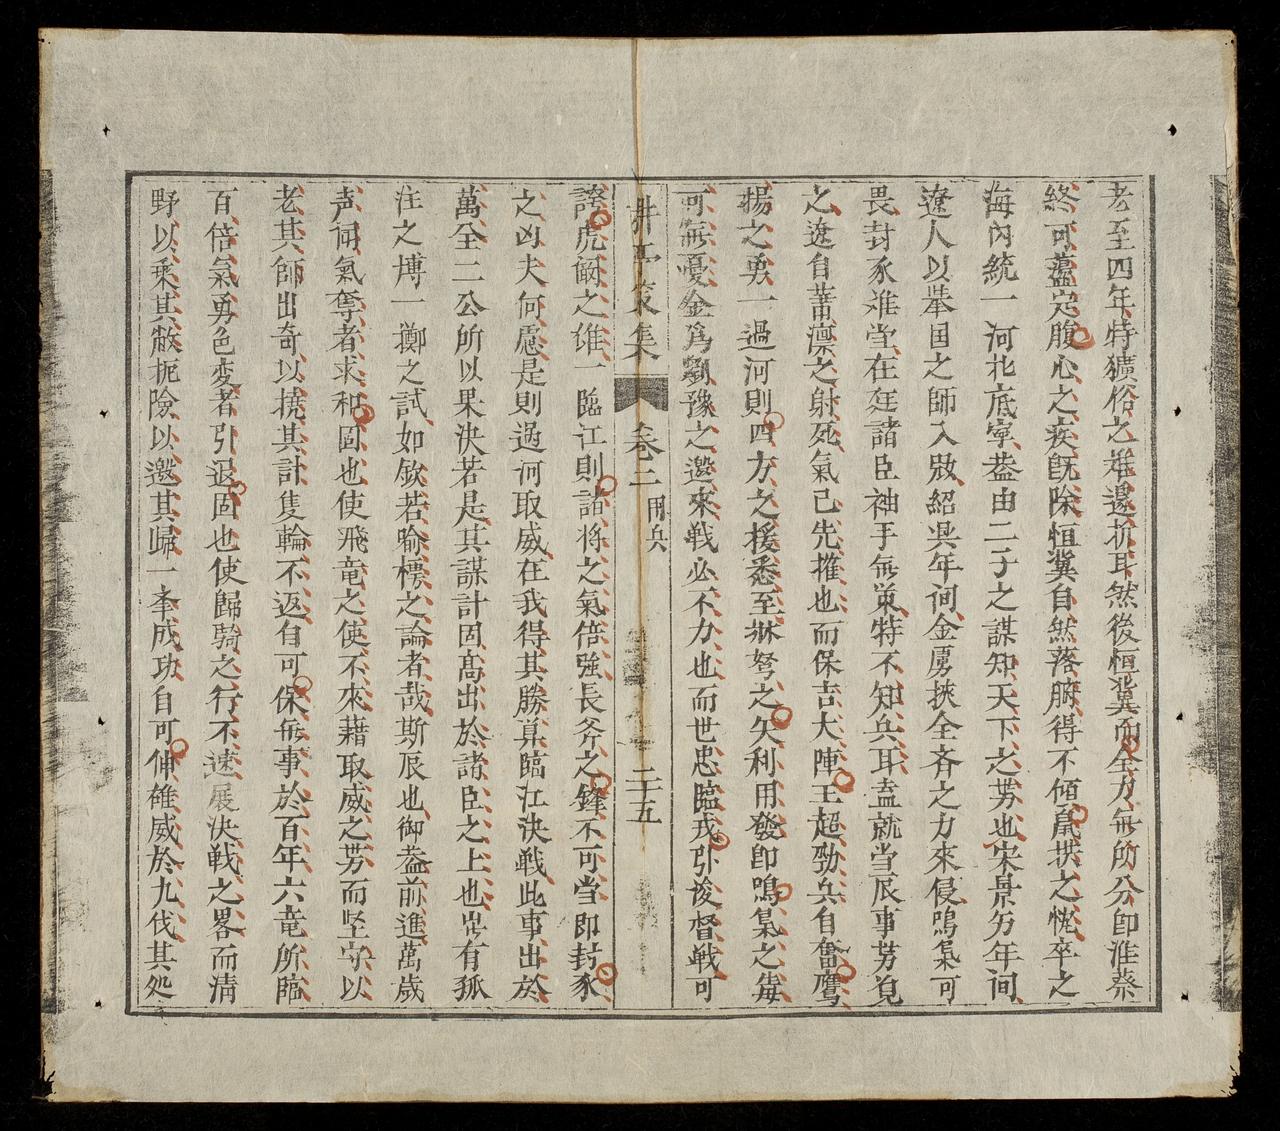 老至四年特獷俗之难遏抗耳然後恒冀而全力無所分卽淮蔡
終可蘯定腹心之疾旣除恒冀自然落膽得不傾巢拱之恍卒之
海內統一河北底寧盖由二子之謀知天下之势也宋景历年间
遼人以举国之師入敀紹兴年间金虜挟全吝之力來侵鳴梟可
畏封豕难当在廷諸臣袖手無策特不知兵耳盍就当辰事势覓
之遼自蕃凛之射死氣已先摧也而保吉大陣王超勁兵自奮鷹
揚之勇一過河則四方之援悉至牀弩之矢利用發卽鳴梟之毎
可無憂金爲劉豫之邀來戦必不力也而世忠臨戎引诶督戦可
卷二 用兵 二十五
誇虎㘎之雄一臨江則諸将之氣倍強長斧之鋒不可当即封豕
之凶夫何慮是則過河取威在我得其勝算臨江決戦此事出於
萬全二公所以果決若是其謀計固高出於諸臣之上也岂有孤
注之愽一擲之試如欽若喻楞之論者哉斯辰也御盖前進萬歲
声伺氣奪者求和固也使飛竜之使不來藉取威之势而坚守以
老其師出奇以撓其計隻輪不返自可保無事於百年六竜所臨
百倍氣勇色变者引退固也使歸騎之行不速展決戦之畧而清
野以乘其敝扼險以邀其歸一李成功自可伸雄威於九伐其処